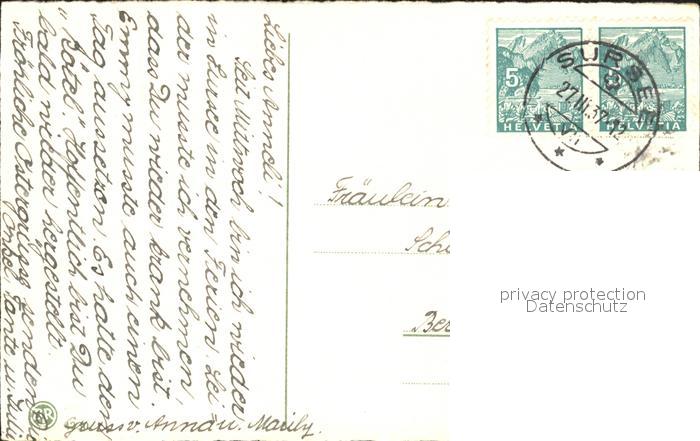 Liebes Anneli!
Seit Mittwoch bin ich wieder
in Sursee in den Ferien. Lei-
der musste ich vernehmen,
dass Du wieder krank bist.
Emmy musste auch einen
Tag aussetzen. Es hatte den
"Hotel". Hoffentlich bist Du
bald wieder hergestellt.
Fröhliche Ostergrüsse senden
Onkel, Tante u.
Gruss v. Annau. Marily.
5
HELVETIA
HELVETIA
SURSEE
27.III.37-12
Fräulein
Sch
Ber
privacy protection
Datenschutz